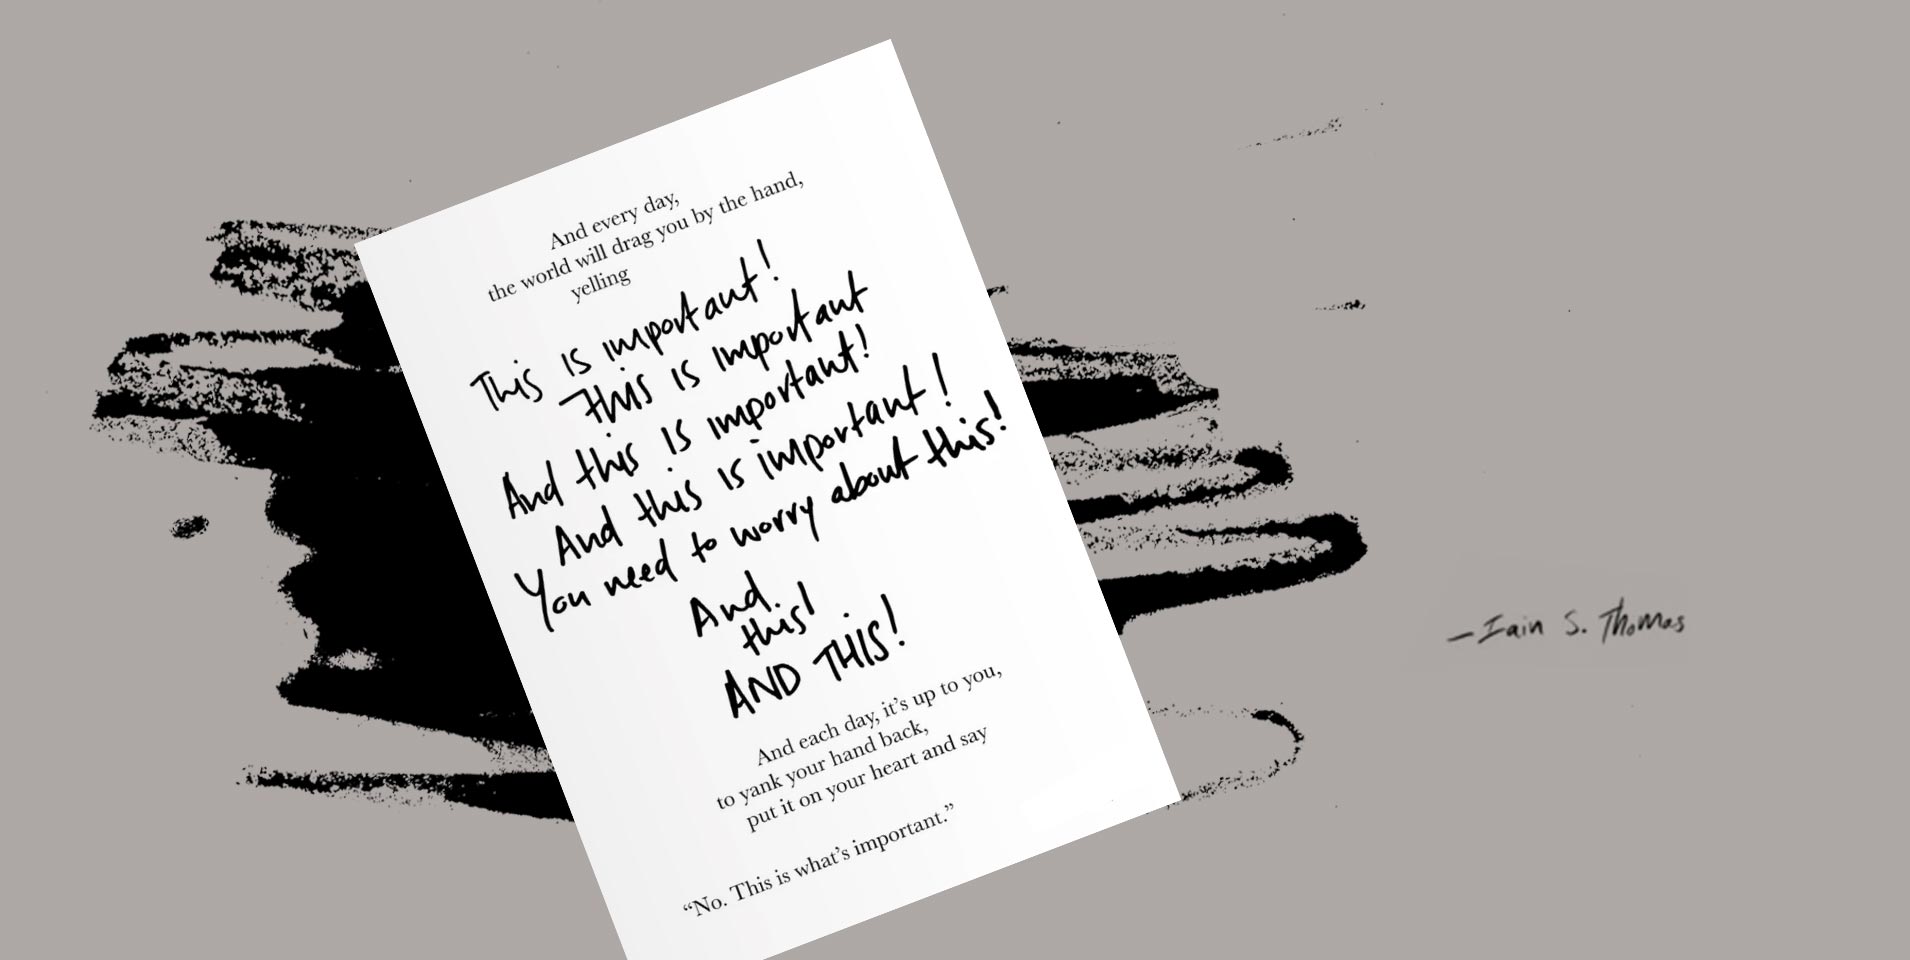 And every day,
the world will drag you by the hand,
yelling
This is important!
This is important
And this is important!
And this is important!
You need to worry about this!
And
this!
AND THIS!
And each day, it’s up to you,
to yank your hand back,
put it on your heart and say
“No. This is what’s important.”
—Iain S. Thomas